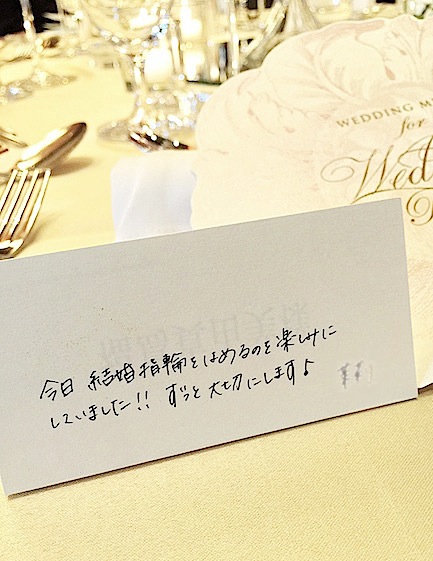 WEDDING M
for
Wed
今日 結婚指輪をはめるのを楽しみに
していました!! ずっと大切にします♪